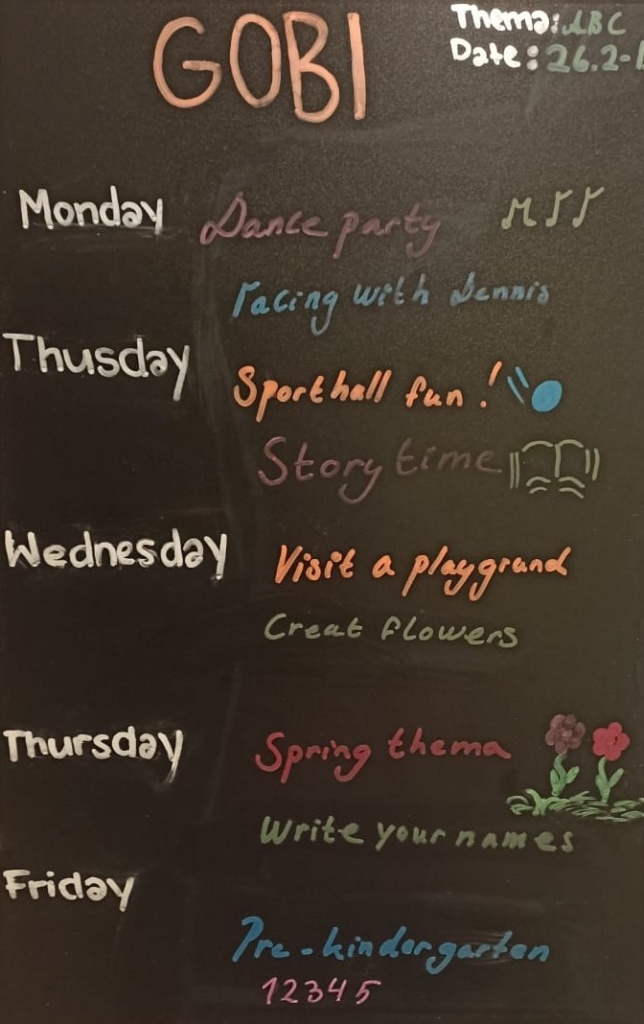 GOBI
Thema: ABC
Date: 26.2-1
Monday Dance party
racing with Dennis
Thusday
Sporthall fun!
Story time
Wednesday Visit a playgrund
Creat flowers
Thursday Spring thema
Write your names
Friday
Pre-kindergarten
12345